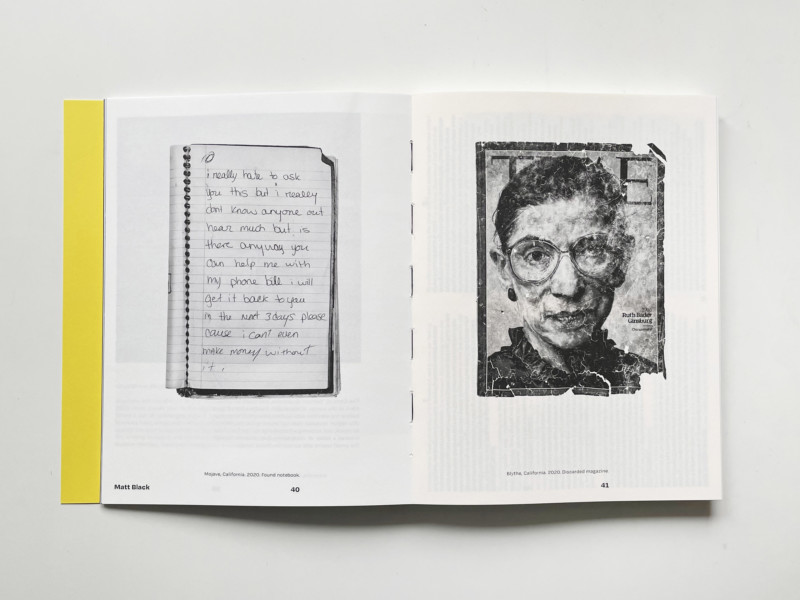 i really hate to ask
you this but i really
dont know anyone out
hear much but is
there anyway you
can help me with
my phone bill i will
get it back to you
in the next 3 days please
cause i can't even
make money without
it.
Mojave, California. 2020. Found notebook.
Matt Black
40
TIME
Ruth Bader
Ginsburg
Blythe, California. 2020. Discarded magazine.
41